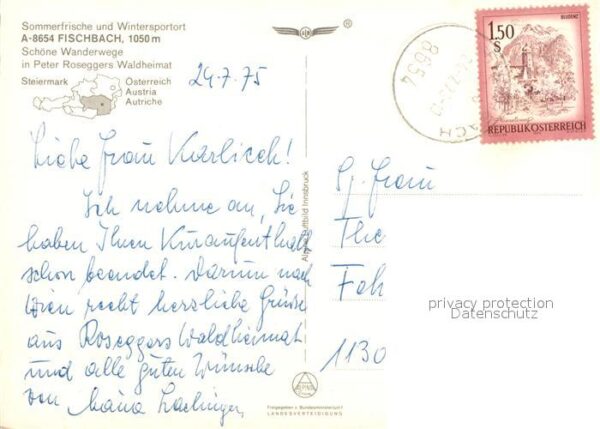 Sommerfrische und Wintersportort
A-8654 FISCHBACH, 1050 m
Schöne Wanderwege
in Peter Roseggers Waldheimat
Steiermark
Österreich
Austria
Autriche
24.7.75
Liebe Frau Karlisch!
Ich nehme an, Sie
haben Ihren Kuraufenthalt
schon beendet. Darum nach
Wien recht herzliche Grüsse
aus Roseggers Waldheimat
und alle guten Wünsche
von
Alpine Luftbild Innsbruck
Freigegeben v. Bundesministerium f.
LANDESVERTEIDIGUNG
®
BLUDENZ
1.50
S
REPUBLIK ÖSTERREICH
8654
Frau
The
Feh
1130
privacy protection
Datenschutz